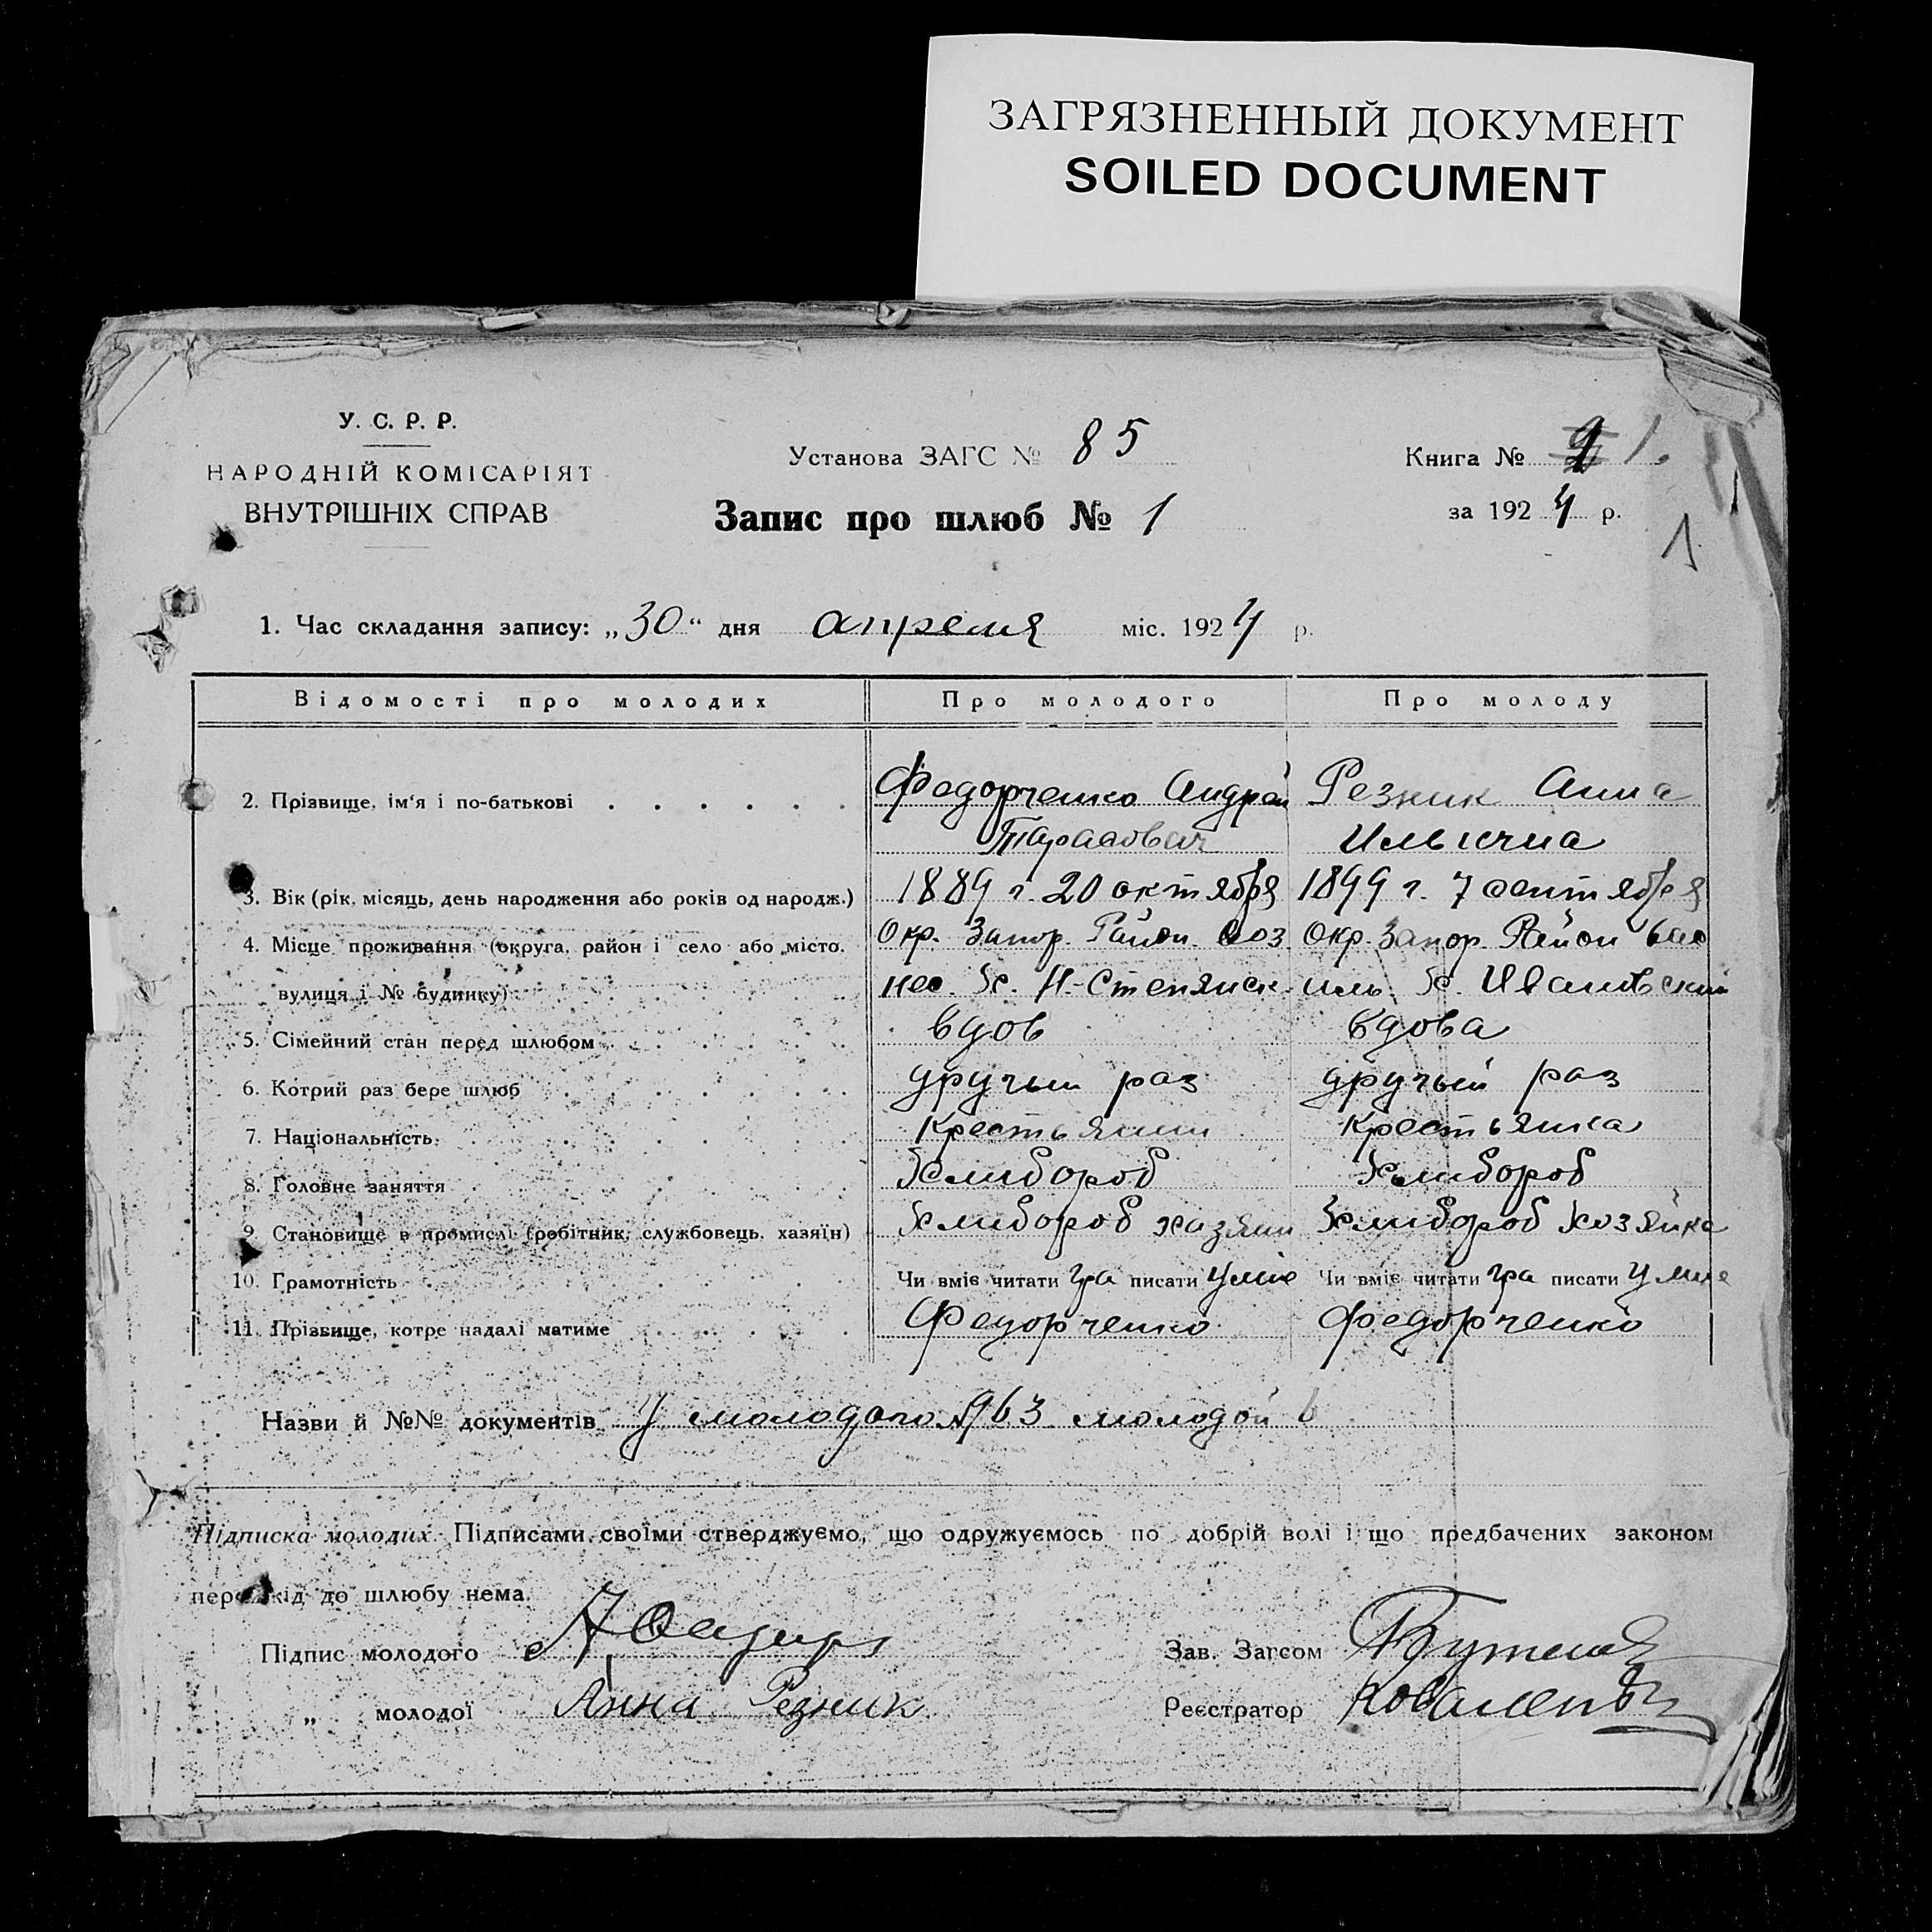 ЗАГРЯЗНЕННЫЙ ДОКУМЕНТ
SOILED DOCUMENT
У. С. Р. Р.
НАРОДНІЙ КОМІСАРІЯТ
ВНУТРІШНІХ СПРАВ
Установа ЗАГС № 85
Запис про шлюб № 1
Книга № 1.
за 1924 р.
1
1. Час складання запису: „30“ дня апреля міс. 1924 р.
Відомості про молодих Про молодого Про молоду
2. Прізвище, ім‘я і по-батькові Федорченко Андрей Резник Анна
Тарасович Ильична
3. Вік (рік, місяць, день народження або років од народж.) 1889 г. 20 октября 1899 г. 7 сентября
4. Місце проживання (округа, район і село або місто, Окр. Запор. Район Воз Окр. Запор. Район Вас
вулиця і № будинку) нес. х. Н.-Степянск. иль. х. Ивановский
5. Сімейний стан перед шлюбом вдов вдова
6. Котрий раз бере шлюб другый раз другый раз
7. Національність Крестьянин Крестьянка
8. Головне заняття Хлибороб Хлибороб
9. Становище в промислі (робітник, службовець, хазяїн) Хлибороб хазяин Хлибороб хозяйка
10. Грамотність Чи вміє читати гра писати умие Чи вміє читати гра писати умие
11. Прізвище, котре надалі матиме Федорченко Федорченко
Назви й №№ документів У молодого №63 молодой
Підписка молодих. Підписами своїми стверджуємо, що одружуємось по добрій волі і що предбачених законом
перешкід до шлюбу нема.
Підпис молодого Зав. Загсом
„ молодої Анна Резник Реєстратор